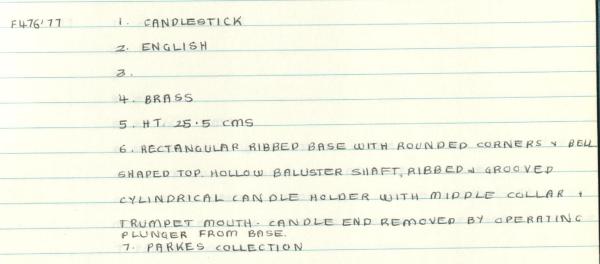 F476'77 1. CANDLESTICK
2. ENGLISH
3.
4. BRASS
5. HT. 25.5 CMS
6. RECTANGULAR RIBBED BASE WITH ROUNDED CORNERS & BELL
SHAPED TOP. HOLLOW BALUSTER SHAFT, RIBBED & GROOVED
CYLINDRICAL CANDLE HOLDER WITH MIDDLE COLLAR &
TRUMPET MOUTH. CANDLE END REMOVED BY OPERATING
PLUNGER FROM BASE.
7. PARKES COLLECTION